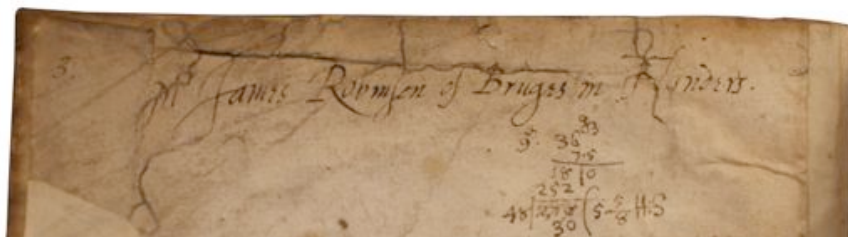 3.
Mr James Robinson of Bruges in Flinders.
9 5. 36
7.5
1810
252
48 (5 5/8 H:S
30